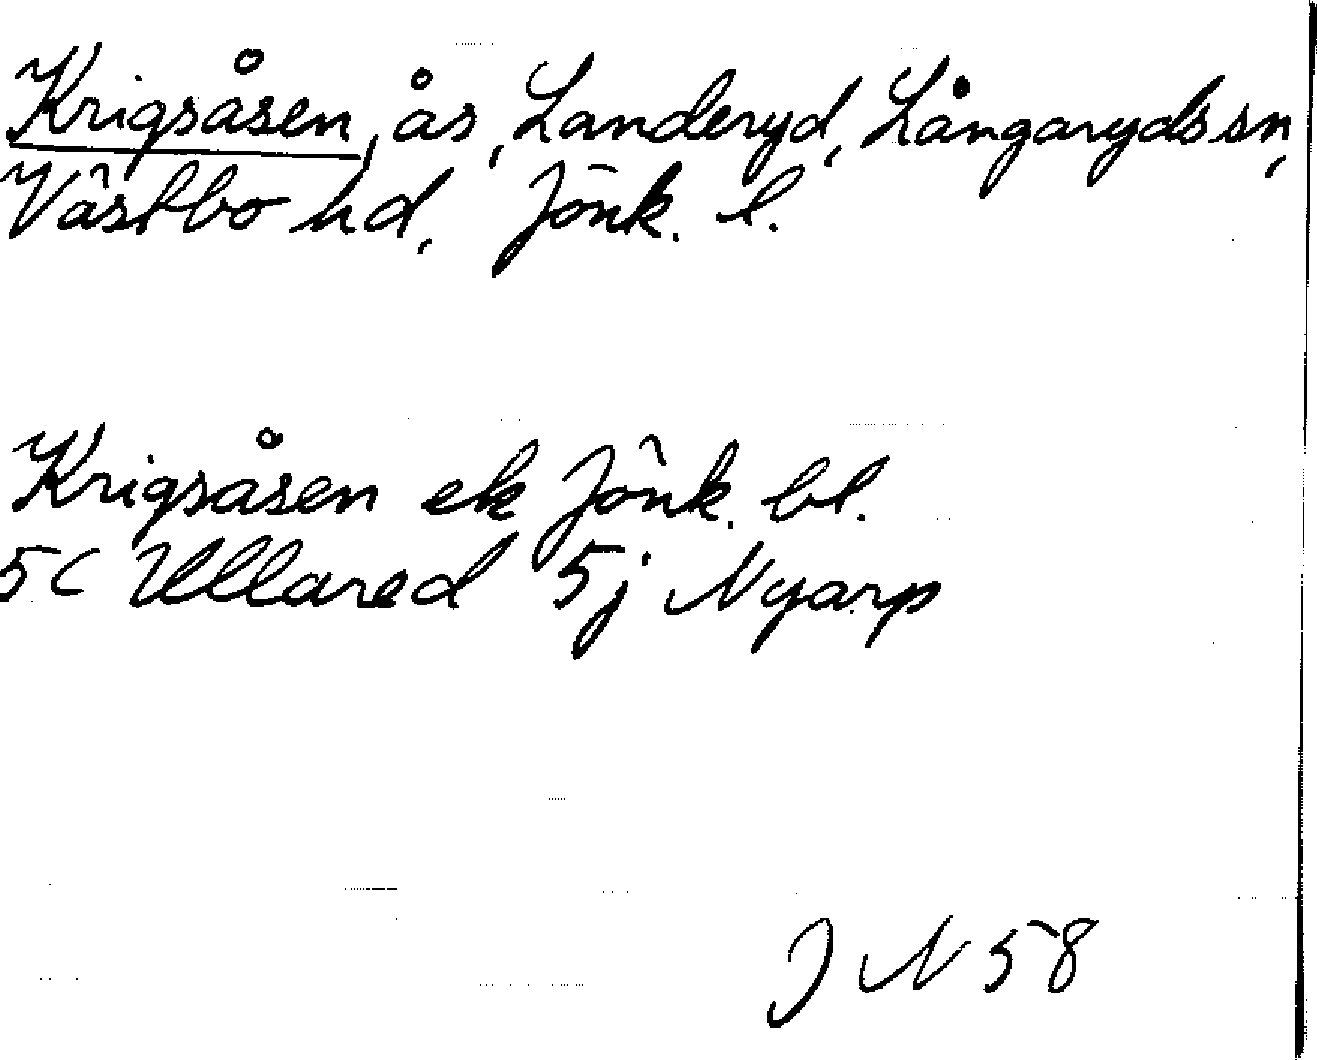 Krigsåsen, ås, Landeryd, Långaryds sn,
Västbo hd, Jönk. l.
Krigsåsen ek Jönk. bl.
5C Ullared 5j Nyarp
J N 58